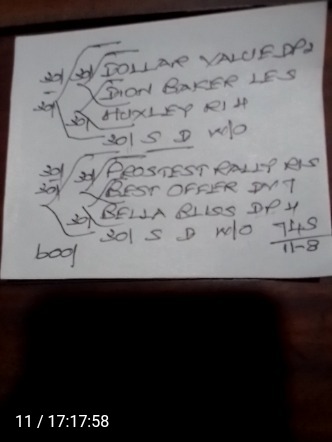 20/ 20/ DOLLAR VALUE DP2
DION BAKER LES
20/ 20/ HUXLEY RI 4
20/ S D W/O
20/ 20/ PROSTEST RALLY RIS
20/ BEST OFFER DN 7
20/ BELLA BLISS DP 4
20/ S D W/O 745
600/ 11-8
11 / 17:17:58